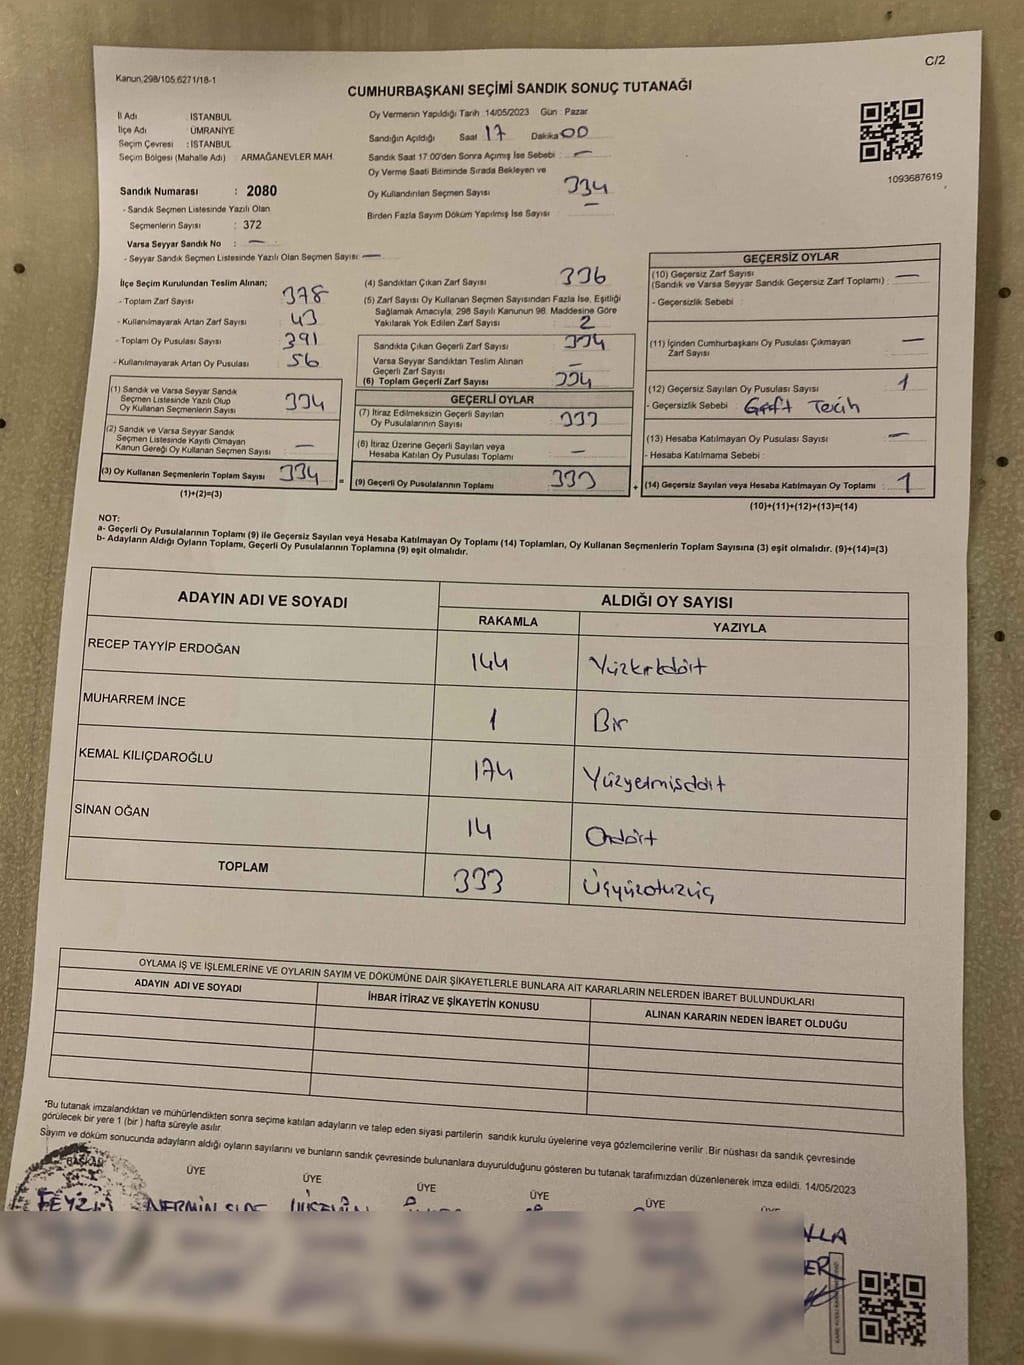 C/2
Kanun,298/105,6271/18-1
CUMHURBAŞKANI SEÇİMİ SANDIK SONUÇ TUTANAĞI
İl Adı : İSTANBUL
İlçe Adı : ÜMRANİYE
Seçim Çevresi : İSTANBUL
Seçim Bölgesi (Mahalle Adı) : ARMAĞANEVLER MAH.
Sandık Numarası : 2080
- Sandık Seçmen Listesinde Yazılı Olan
Seçmenlerin Sayısı : 372
Varsa Seyyar Sandık No : —
- Seyyar Sandık Seçmen Listesinde Yazılı Olan Seçmen Sayısı : —
Oy Vermenin Yapıldığı Tarih : 14/05/2023 Gün : Pazar
Sandığın Açıldığı Saat : 17 Dakika : 00
Sandık Saat 17:00'den Sonra Açılmış İse Sebebi : —
Oy Verme Saati Bitiminde Sırada Bekleyen ve
Oy Kullandırılan Seçmen Sayısı 334
Birden Fazla Sayım Döküm Yapılmış İse Sayısı : —
1093687619
İlçe Seçim Kurulundan Teslim Alınan;
- Toplam Zarf Sayısı : 378
- Kullanılmayarak Artan Zarf Sayısı : 43
- Toplam Oy Pusulası Sayısı : 391
- Kullanılmayarak Artan Oy Pusulası : 56
(1) Sandık ve Varsa Seyyar Sandık
Seçmen Listesinde Yazılı Olup
Oy Kullanan Seçmenlerin Sayısı : 334
(2) Sandık ve Varsa Seyyar Sandık
Seçmen Listesinde Kayıtlı Olmayan
Kanun Gereği Oy Kullanan Seçmen Sayısı : —
(3) Oy Kullanan Seçmenlerin Toplam Sayısı : 334
(1)+(2)=(3)
(4) Sandıktan Çıkan Zarf Sayısı : 336
(5) Zarf Sayısı Oy Kullanan Seçmen Sayısından Fazla İse, Eşitliği
Sağlamak Amacıyla, 298 Sayılı Kanunun 98. Maddesine Göre
Yakılarak Yok Edilen Zarf Sayısı : 2
Sandıkta Çıkan Geçerli Zarf Sayısı : 334
Varsa Seyyar Sandıktan Teslim Alınan
Geçerli Zarf Sayısı : —
(6) Toplam Geçerli Zarf Sayısı : 334
GEÇERLİ OYLAR
(7) İtiraz Edilmeksizin Geçerli Sayılan
Oy Pusulalarının Sayısı : 333
(8) İtiraz Üzerine Geçerli Sayılan veya
Hesaba Katılan Oy Pusulası Toplamı : —
= (9) Geçerli Oy Pusulalarının Toplamı : 333
GEÇERSİZ OYLAR
(10) Geçersiz Zarf Sayısı
(Sandık ve Varsa Seyyar Sandık Geçersiz Zarf Toplamı) : —
- Geçersizlik Sebebi :
(11) İçinden Cumhurbaşkanı Oy Pusulası Çıkmayan
Zarf Sayısı : —
(12) Geçersiz Sayılan Oy Pusulası Sayısı : 1
- Geçersizlik Sebebi : Çift Tercih
(13) Hesaba Katılmayan Oy Pusulası Sayısı : —
- Hesaba Katılmama Sebebi :
+ (14) Geçersiz Sayılan veya Hesaba Katılmayan Oy Toplamı : 1
(10)+(11)+(12)+(13)=(14)
NOT:
a- Geçerli Oy Pusulalarının Toplamı (9) ile Geçersiz Sayılan veya Hesaba Katılmayan Oy Toplamı (14) Toplamları, Oy Kullanan Seçmenlerin Toplam Sayısına (3) eşit olmalıdır. (9)+(14)=(3)
b- Adayların Aldığı Oyların Toplamı, Geçerli Oy Pusulalarının Toplamına (9) eşit olmalıdır.
ADAYIN ADI VE SOYADI ALDIĞI OY SAYISI
RAKAMLA YAZIYLA
RECEP TAYYİP ERDOĞAN 144 Yüzkırkdört
MUHARREM İNCE 1 Bir
KEMAL KILIÇDAROĞLU 174 Yüzyetmişdört
SİNAN OĞAN 14 Ondört
TOPLAM 333 Üçyüzotuzüç
OYLAMA İŞ VE İŞLEMLERİNE VE OYLARIN SAYIM VE DÖKÜMÜNE DAİR ŞİKAYETLERLE BUNLARA AİT KARARLARIN NELERDEN İBARET BULUNDUKLARI
ADAYIN ADI VE SOYADI İHBAR İTİRAZ VE ŞİKAYETİN KONUSU ALINAN KARARIN NEDEN İBARET OLDUĞU
*Bu tutanak imzalandıktan ve mühürlendikten sonra seçime katılan adayların ve talep eden siyasi partilerin sandık kurulu üyelerine veya gözlemcilerine verilir .Bir nüshası da sandık çevresinde
görülecek bir yere 1 (bir ) hafta süreyle asılır.
Sayım ve döküm sonucunda adayların aldığı oyların sayılarını ve bunların sandık çevresinde bulunanlara duyurulduğunu gösteren bu tutanak tarafımızdan düzenlenerek imza edildi. 14/05/2023
BAŞKAN ÜYE ÜYE ÜYE ÜYE ÜYE ÜYE
NERMİN